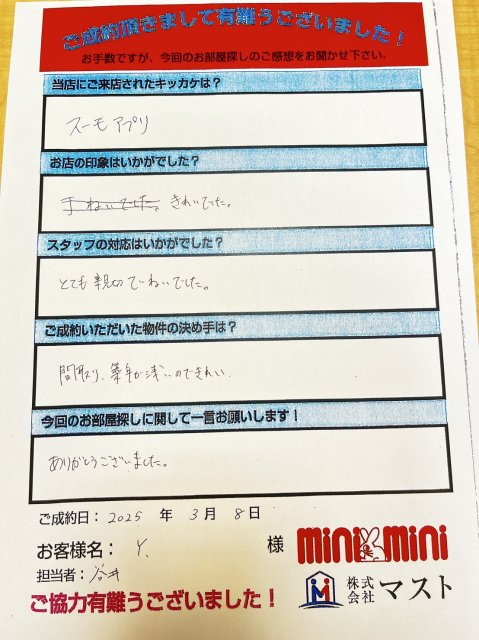 ご成約頂きまして有難うございました！
お手数ですが、今回のお部屋探しのご感想をお聞かせ下さい。
当店にご来店されたキッカケは？
スーモアプリ
お店の印象はいかがでした？
きれいでした。
スタッフの対応はいかがでした？
とても親切でいねいでした。
ご成約いただいた物件の決め手は？
間取り、築年が浅いのできれい
今回のお部屋探しに関して一言お願いします！
ありがとうございました。
ご成約日：2025 年 3月 8日
お客様名： Y. 様
担当者：谷井
ご協力有難うございました！
mini mini
株式会社 マスト